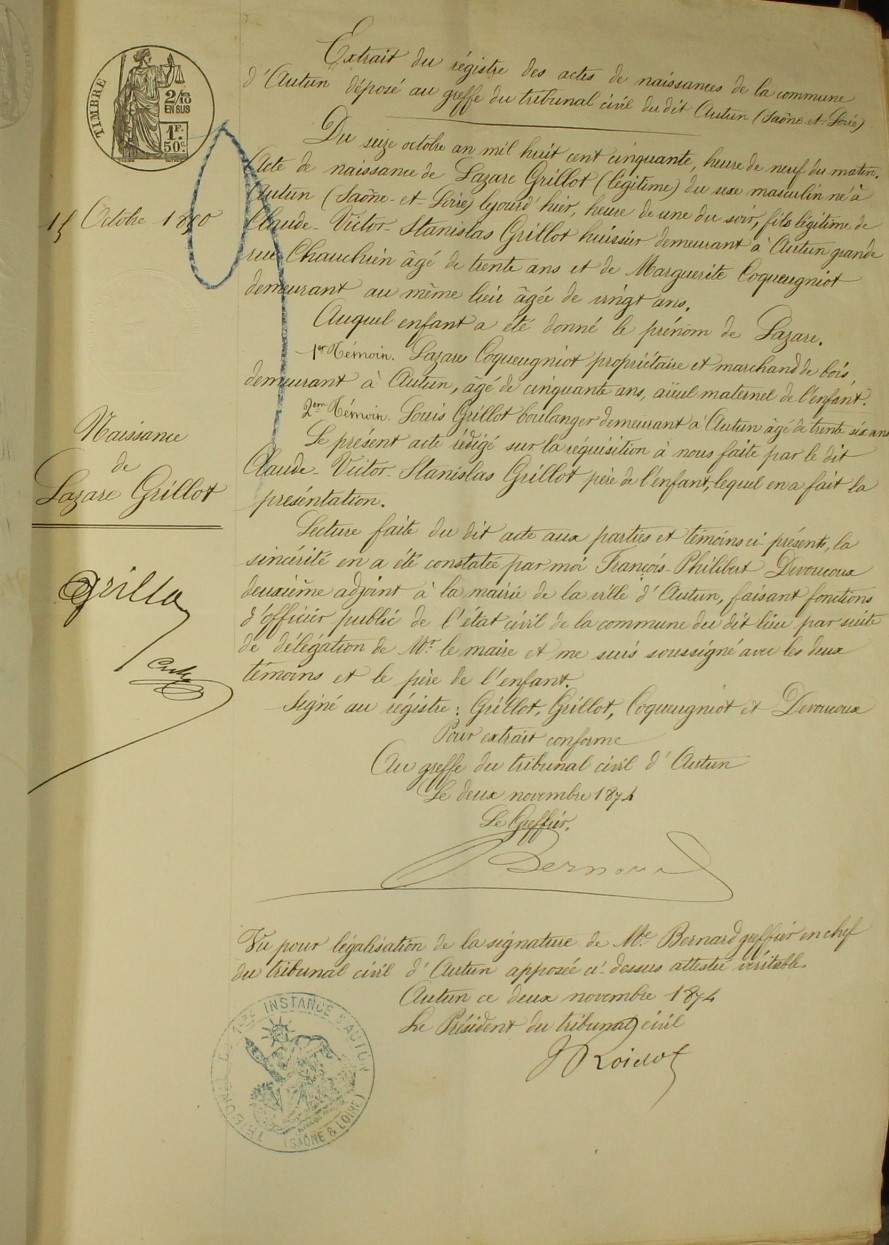 TIMBRE
2/10
EN SUS
1F.
50c.
Extrait du régistre des actes de naissances de la commune
d'Autun déposé au greffe du tribunal civil du dit Autun (Saône-et-Loire)
Du seize octobre an mil huit cent cinquante, heure de neuf du matin.
Acte de naissance de Lazare Grillot (légitime) du sexe masculin né à
Autun (Saône-et-Loire) le jourd'hier, heure de une du soir, fils légitime de
15 Octobre 1850
Claude-Victor-Stanislas Grillot huissier demeurant à Autun grande
rue Chauchien âgé de trente ans et de Marguerite Coqueugniot
demeurant au même lieu âgée de vingt ans.
Auquel enfant a été donné le prénom de Lazare.
1er Témoin. Lazare Coqueugniot propriétaire et marchand de bois,
demeurant à Autun, âgé de cinquante ans, aïeul maternel de l'enfant.
2em Témoin. Louis Grillot boulanger demeurant à Autun âgé de trente six ans
Le présent acte rédigé sur la réquisition à nous faite par le dit
Claude-Victor-Stanislas Grillot père de l'enfant, lequel en a fait la
présentation.
Naissance
de
Lazare Grillot
Lecture faite du dit acte aux parties et témoins ci présents, la
sincérité en a été constatée par moi François-Philibert Devoucoux
deuxième adjoint à la mairie de la ville d'Autun, faisant fonctions
d'officier public de l'état civil de la commune du dit lieu par suite
de délégation de Mr le maire et me suis soussigné avec les deux
témoins et le père de l'enfant.
Signé au régistre: Grillot, Grillot, Coqueugniot et Devoucoux
Pour extrait conforme
Au greffe du tribunal civil d'Autun
Le deux novembre 1874
Le Greffier,
Bernard
Vu pour légalisation de la signature de Me Bernard greffier en chef
du tribunal civil d'Autun apposée ci dessus attestée véritable.
Autun ce deux novembre 1874
Le Président du tribunal civil
Roidot
TRIBUNAL DE 1ère INSTANCE D'AUTUN
(SAÔNE & LOIRE)